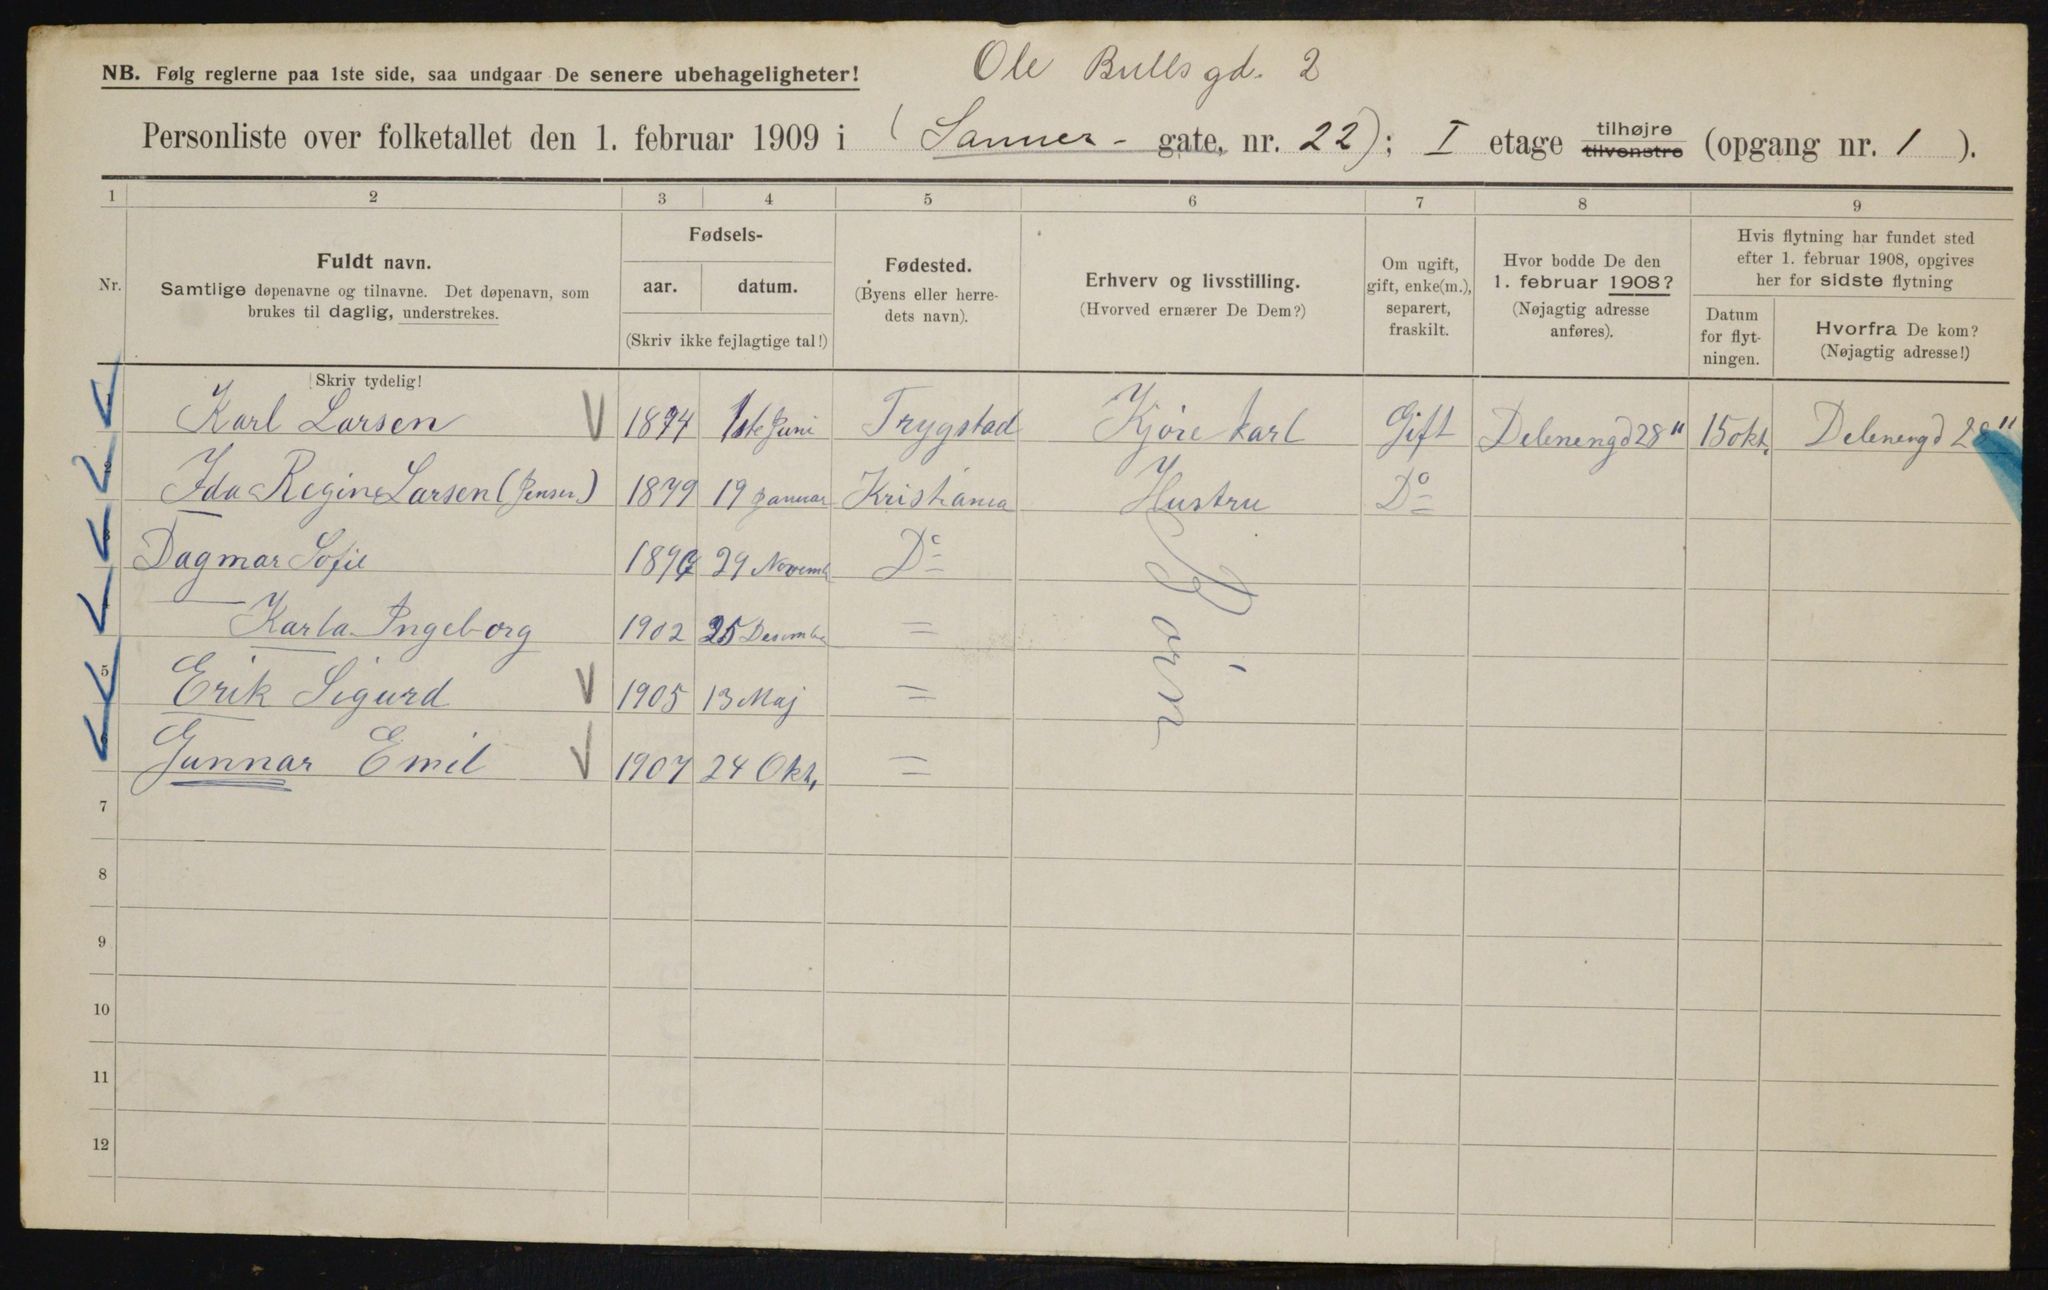 Ole Bullsgd. 2
NB. Følg reglerne paa 1ste side, saa undgaar De senere ubehageligheter!
Personliste over folketallet den 1. februar 1909 i (Sanner- gate, nr. 22); I etage tilhøjre tilvenstre (opgang nr. 1 ).
1 2 3 4 5 6 7 8 9
Nr.
Fuldt navn.
Samtlige døpenavne og tilnavne. Det døpenavn, som
brukes til daglig, understrekes.
Skriv tydelig!
Fødsels-
aar. datum.
(Skriv ikke fejlagtige tal!)
Fødested.
(Byens eller herre-
dets navn).
Erhverv og livsstilling.
(Hvorved ernærer De Dem?)
Om ugift,
gift, enke(m.),
separert,
fraskilt.
Hvor bodde De den
1. februar 1908?
(Nøjagtig adresse
anføres).
Hvis flytning har fundet sted
efter 1. februar 1908, opgives
her for sidste flytning
Datum
for flyt-
ningen.
Hvorfra De kom?
(Nøjagtig adresse!)
Karl Larsen 1874 1ste Juni Trygstad Kjøre karl Gift Delenengd 28" 15 okt. Delenengd 28"
Ida Regine Larsen (Jensen) 1879 19 Januar Kristiania Hustru Do
Dagmar Sofie 29 Novemb Do
Karla Ingeborg 1902 25 Desember =
5 Erik Sigurd 1905 13 Maj =
Gunnar Emil 1907 24 Okt. =
Børn
7
8
9
10
11
12